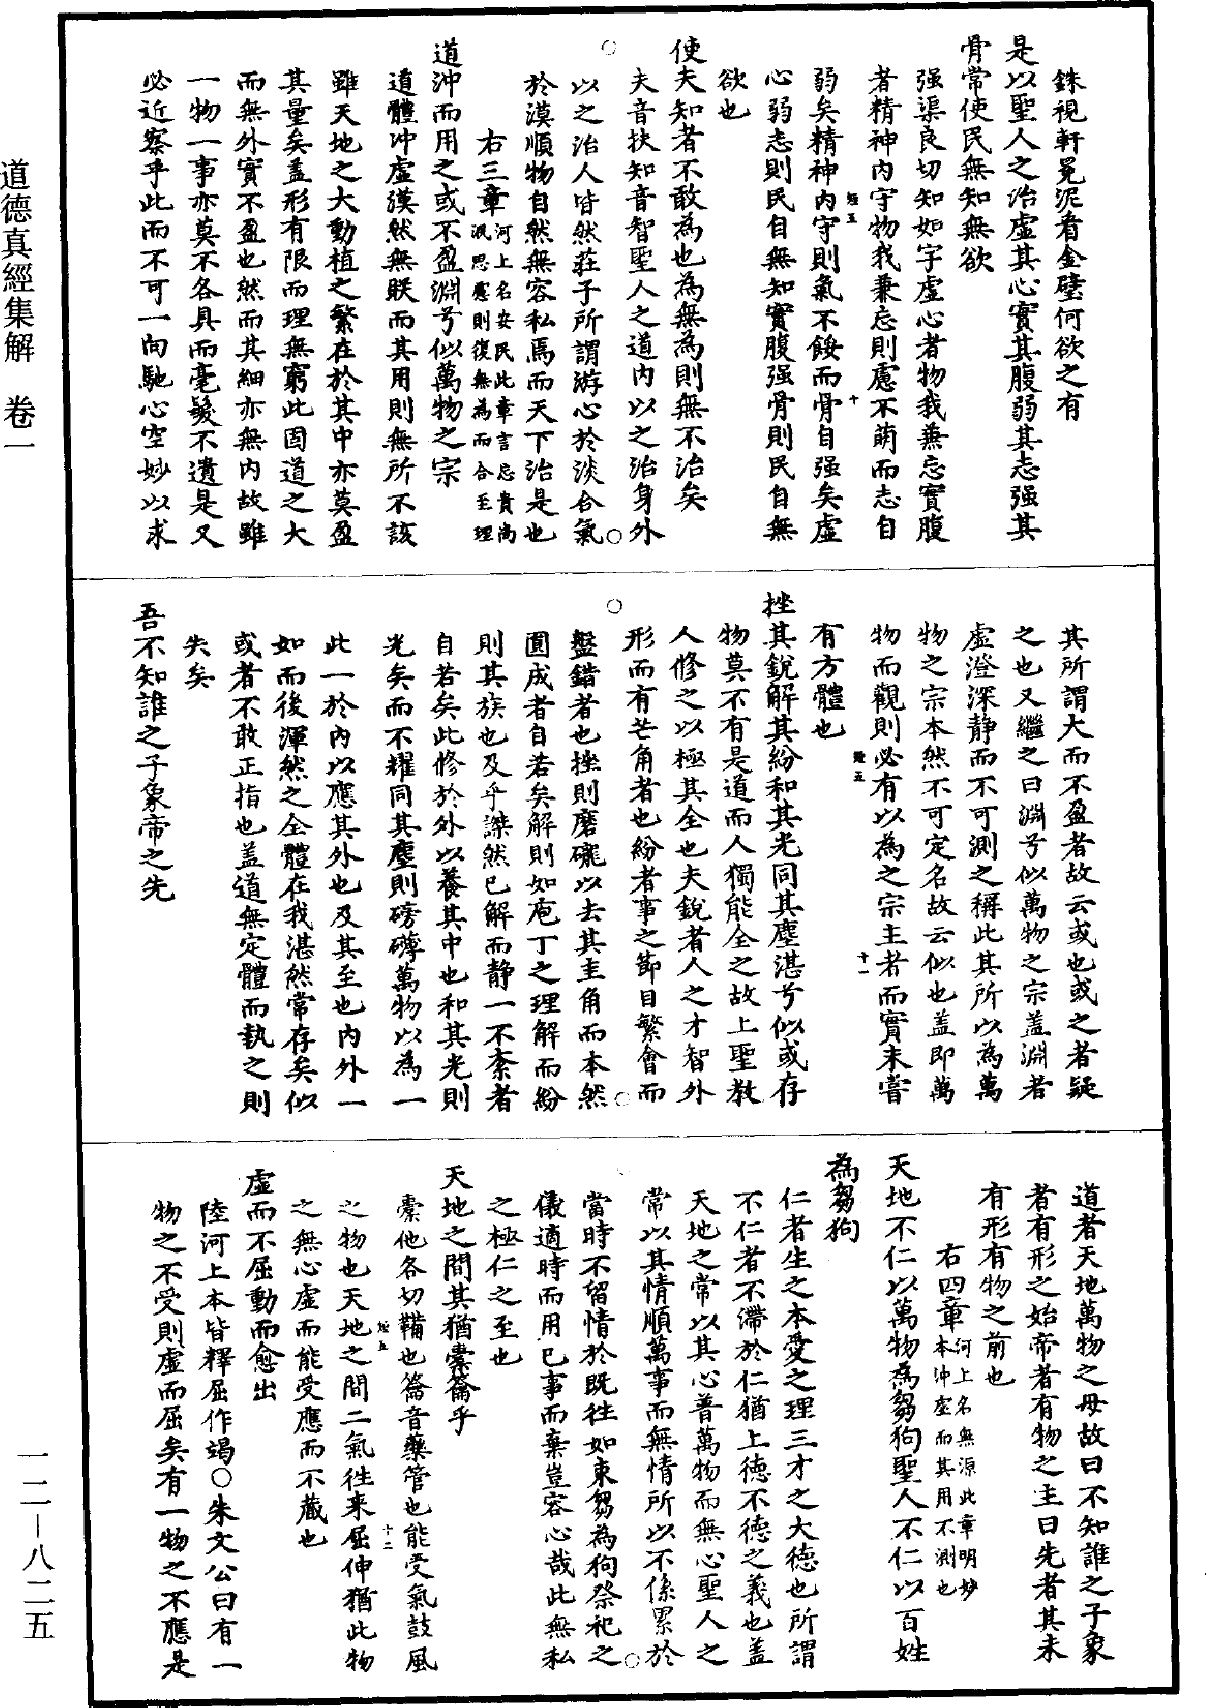 銖視軒冕泥看金璧何欲之有
是以聖人之治虛其心實其腹弱其志强其
骨常使民無知無欲
强渠良切知如字虛心者物我兼忘實腹
者精神內守物我兼忘則慮不萌而志自
弱矣精神內守則氣不餒而骨自强矣虛
心弱志則民自無知實腹强骨則民自無
欲也
使夫知者不敢為也為無為則無不治矣
夫音扶知音智聖人之道內以之治身外
以之治人皆然莊子所謂游心於淡合氣
於漠順物自然無容私焉而天下治是也
右三章河上名安民此章言忘貴尚
泯思慮則復無為而合至理
道沖而用之或不盈淵兮似萬物之宗
道體沖虛漠然無眹而其用則無所不該
雖天地之大動植之繁在於其中亦莫盈
其量矣盖形有限而理無窮此固道之大
而無外實不盈也然而其細亦無內故雖
一物一事亦莫不各具而毫髮不遺是又
必近察乎此而不可一向馳心空妙以求
其所謂大而不盈者故云或也或之者疑
之也又繼之曰淵兮似萬物之宗盖淵者
虛澄深靜而不可測之稱此其所以為萬
物之宗本然不可定名故云似也盖即萬
物而觀則必有以為之宗主者而實未嘗
有方體也
挫其銳解其紛和其光同其塵湛兮似或存
物莫不有是道而人獨能全之故上聖教
人修之以極其全也夫銳者人之才智外
形而有芒角者也紛者事之節目繁會而
盤錯者也挫則磨礲以去其圭角而本然
圓成者自若矣解則如庖丁之理解而紛
則其族也及乎謋然已解而靜一不紊者
自若矣此修於外以養其中也和其光則
光矣而不耀同其塵則磅礴萬物以為一
此一於內以應其外也及其至也內外一
如而後渾然之全體在我湛然常存矣似
或者不敢正指也盖道無定體而執之則
失矣
吾不知誰之子象帝之先
道者天地萬物之母故曰不知誰之子象
者有形之始帝者有物之主曰先者其未
有形有物之前也
右四章河上名無源此章明妙
本沖虛而其用不測也
天地不仁以萬物為芻狗聖人不仁以百姓
為芻狗
仁者生之本愛之理三才之大德也所謂
不仁者不滯於仁猶上德不德之義也盖
天地之常以其心普萬物而無心聖人之
常以其情順萬事而無情所以不係累於
當時不留情於既往如束芻為狗祭祀之
儀適時而用已事而棄豈容心哉此無私
之極仁之至也
天地之間其猶橐籥乎
橐他各切鞴也籥音藥管也能受氣鼓風
之物也天地之間二氣往来屈伸猶此物
之無心虛而能受應而不藏也
虛而不屈動而愈出
陸河上本皆釋屈作竭○朱文公曰有一
物之不受則虛而屈矣有一物之不應是
道德真經集解 卷一
一二—八二五